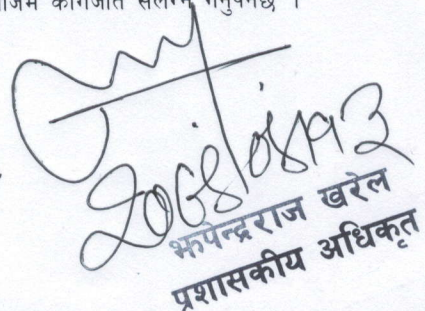 कागजात संलग्न गर्नुपर्नेछ ।
झपेन्द्रराज खरेल
प्रशासकीय अधिकृत